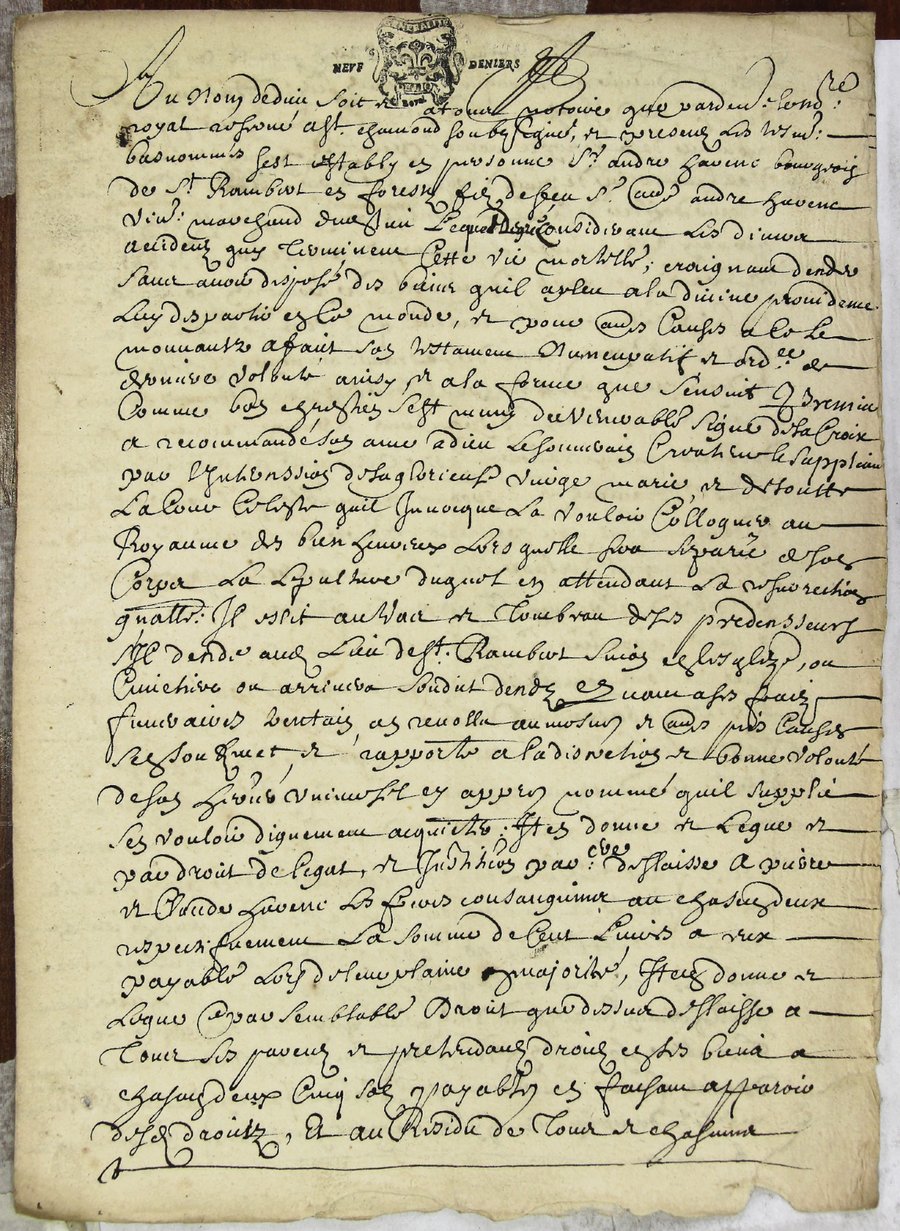 NEUF DENIERS
Au Nom de dieu soit et a tous notoire que pardevt le nore
royal reservé a St chamond soubzsigné, et presens les tesms
bas nommés sest estably en personne Sr andre havenc bourgeois
de St Rambert en forestz filz de feu Sr andre havenc
viv. marchand Lequel Considerant les divers
accidens quy terminent Cette vie mortelle, craignant dendre
sans avoir disposé des biens quil a pleu a la divine providence
luy despartir en ce monde, et pour aues Causes a ce le
mouvantz a fait son testament Nuncupatif et ordce de
derniere volonté ainsy et a la forme que sensuit Premier
Comme bon chrestien sest muny du venerable signe de la Croix
a recommandé son ame a dieu le souverain Createur le suppliant
par lIntercession de la glorieuse vierge marie, et de toutte
La Cour Celeste quil Invocque La vouloir Colloquer au
Royaume des bien heureux Lors quelle sera separée de son
Corps La sepulture duquel en attendant La resurrection
Il eslit au Vas et Tombeau de ses predecesseurs
sil dende aud Lieu de St Rambert sinon en lesglize, ou
Cimetiere ou arrivera sondit dendz Et quant a ses fraiz
funeraires aumosnes et aues pies Causes
sen soubzmet, et rapporte a la discretion et bonne volonté
de son herer universel en appres nommé quil supplie
sen vouloir dignement acquitter: Item donne et Legue et
par droit de legat, et Institution parere deslaisse a pierre
et Claude havenc ses freres consanguins au chascun deux
respectifvement La somme de Cent Livres a eux
payable Lors de leur plaine majorité, Item donne et
Legue et par semblable Droit que dessus deslaisse a
Tous ses parens et pretendans droictz en ses biens a
chascun deux Cinq solz payables en faisant apparoir
desd droictz, Et au Residu de Tous et chascuns